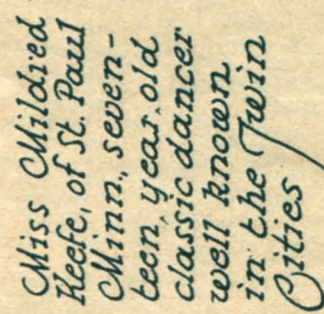 Miss Mildred
Keefe, of St. Paul
Minn., seven-
teen, year, old
classic dancer
well known
in the Twin
Cities